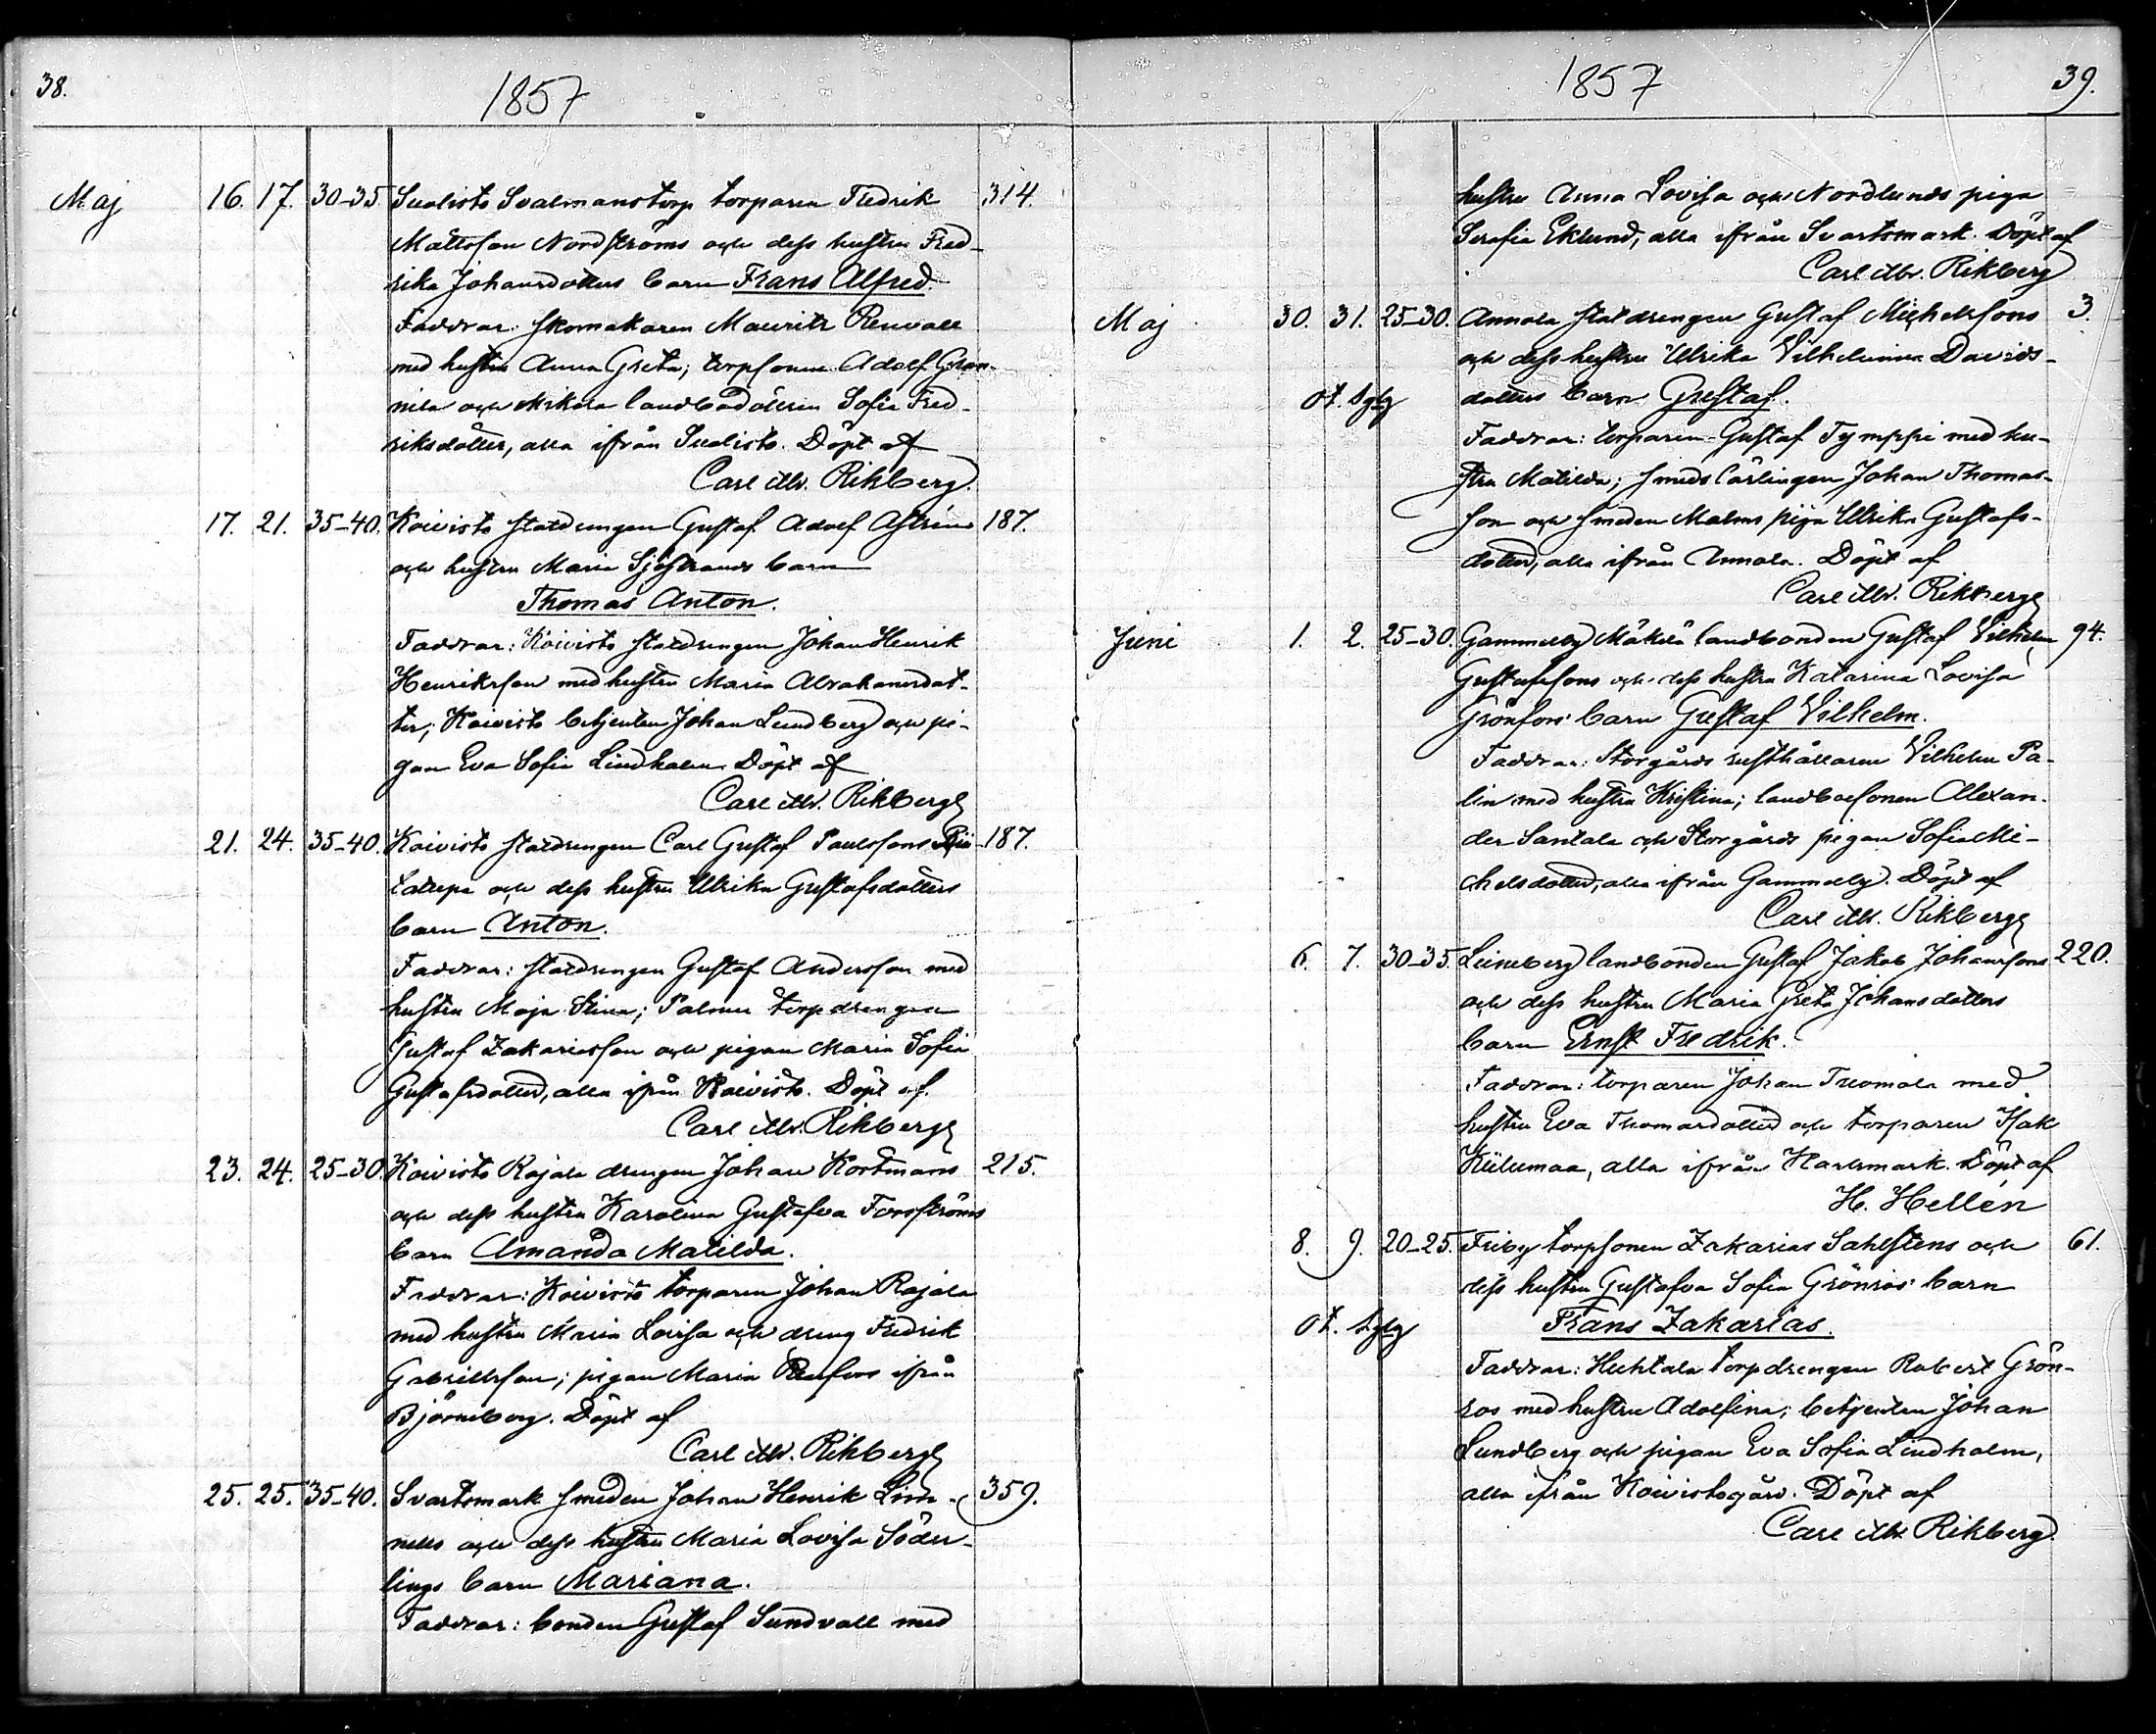 38.
1857
Maj 16. 17. 30-35. Sualisto Svalmanstorp torparen Fredrik 314.
Mattsson Nordströms och dess hustru Fred-
rika Johansdotters barn Frans Alfred.
Faddrar: skomakaren Mauritz Renvall
med hustru Anna Greta; torpsonen Adolf Gran-
nila och Mikola landbodottren Sofia Fred-
riksdotter, alla ifrån Sualisto. Döpt af
Carl Alb. Rikberg.
17. 21. 35-40. Koivisto statdrengen Gustaf Adolf Aströms 187.
och hustru Maria Sjöstrands barn
Thomas Anton.
Faddrar: Koivisto statdrengen Johan Henrik
Henriksson med hustru Maria Abrahamsdot-
ter; Koivisto betjenten Johan Lundberg och pi-
gan Eva Sofia Lindholm. Döpt af
Carl Alb. Rikberg
21. 24. 35-40. Koivisto statdrengen Carl Gustaf Paulssons 187.
och dess hustru Ulrika Gustafsdotters
barn Anton.
Faddrar: statdrengen Gustaf Andersson med
hustru Maja Stina; Palmu torpdrengen
Gustaf Zakariasson och pigan Maria Sofia
Gustafsdotter, alla ifrån Koivisto. Döpt af
Carl Alb. Rikberg
23. 24. 25-30. Koivisto Rajala drengen Johan Kortmans 215.
och dess hustru Karolina Gustafva Forsströms
barn Amanda Matilda.
Faddrar: Koivisto torparen Johan Rajala
med hustru Maria Lovisa och dreng Fredrik
Gabrielsson; pigan Maria Renfors ifrån
Björneborg. Döpt af
Carl Alb. Rikberg
25. 25. 35-40. Svartsmark smeden Johan Henrik Lin- 359.
nells och dess hustru Maria Lovisa Söder-
lings barn Mariana.
Faddrar: bonden Gustaf Sundvall med
1857
39.
hustru Anna Lovisa och Nordlunds piga
Serafia Eklund, alla ifrån Svartsmark. Döpt af
Carl Alb. Rikberg
Maj 30. 31. 25-30. Annola statdrengen Gustaf Michelssons 3.
och dess hustru Ulrika Vilhelmina Davids-
dotters barn Gustaf.
Faddrar: torparen Gustaf Tymppi med hu-
stru Matilda; smedslärlingen Johan Thomas-
son och smeden Malms piga Ulrika Gustafs-
dotter, alla ifrån Annola. Döpt af
Carl Alb. Rikberg
Juni 1. 2. 25-30. Gammelby Mäkilä landbonden Gustaf Vilhelm 94.
Gustafssons och dess hustru Katarina Lovisa
Grönfors' barn Gustaf Vilhelm.
Faddrar: Storgårds rusthållaren Vilhelm Pa-
lin med hustru Kristina; landbosonen Alexan-
der Santala och Storgårds pigan Sofia Mi-
chelsdotter, alla ifrån Gammelby. Döpt af
Carl Alb. Rikberg
6. 7. 30-35. Leineberg landbonden Gustaf Jakob Johanssons 220.
och dess hustru Maria Greta Johansdotters
barn Ernst Fredrik.
Faddrar: torparen Johan Tuomola med
hustru Eva Thomasdotter och torparen Isak
Kiilumaa, alla ifrån Harlsmark. Döpt af
H. Hellén
8. 9. 20-25. Friby torpsonen Zakarias Sahlstens och 61.
dess hustru Gustafva Sofia Grönros' barn
Frans Zakarias.
Faddrar: Huhtala torpdrengen Robert Grön-
ros med hustru Adolfina; betjenten Johan
Lundberg och pigan Eva Sofia Lindholm,
alla ifrån Koivistogård. Döpt af
Carl Alb. Rikberg.